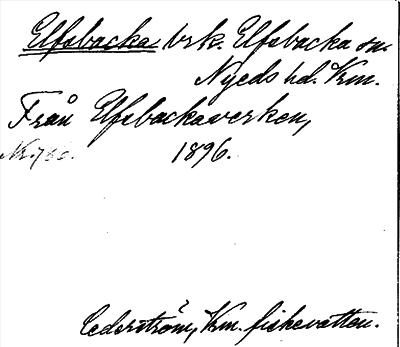 Elfsbacka brk. Elfsbacka sn.
Nyeds hd. Vrm.
Från Elfsbackaverken,
1896.
Cederström, Vrm. fiskevatten.